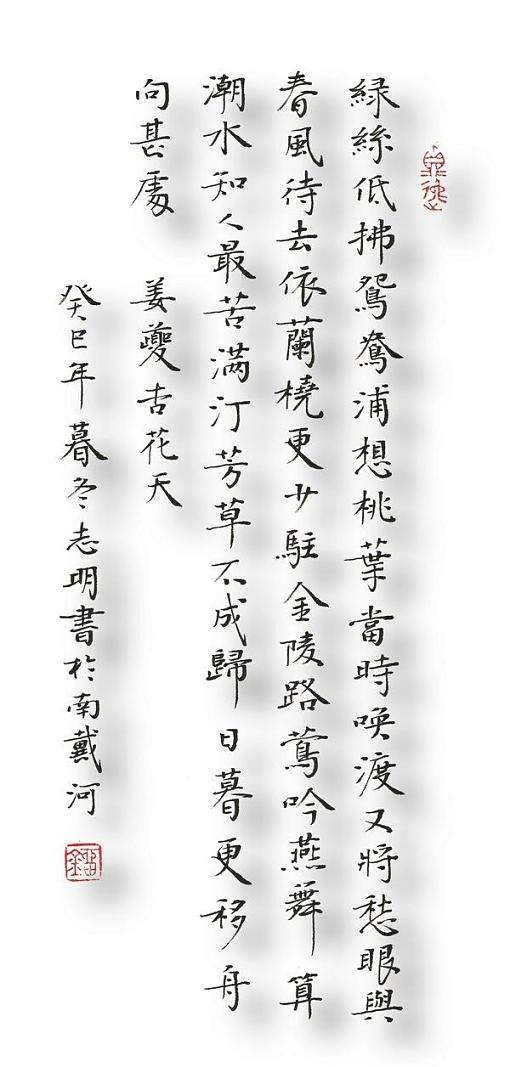 緑絲低拂鴛鴦浦想桃葉當時喚渡又將愁眼與
春風待去依蘭橈更少駐金陵路鶯吟燕舞算
潮水知人最苦滿汀芳草不成歸日暮更移舟
向甚處 姜夔杏花天
癸巳年暮冬志明書於南戴河